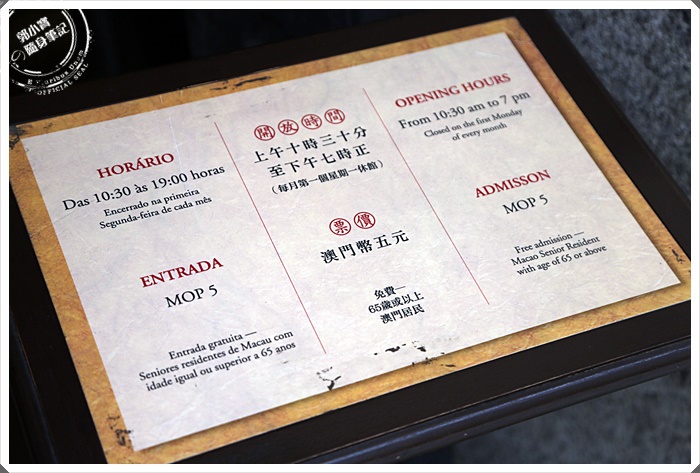 郭小寶
隨身筆記
E Pluribus Unum
OFFICIAL SEAL
HORÁRIO
Das 10:30 às 19:00 horas
Encerrado na primeira
Segunda-feira de cada mês
ENTRADA
MOP 5
Entrada gratuita —
Seniores residentes de Macau com
idade igual ou superior a 65 anos
開放時間
上午十時三十分
至下午七時正
(每月第一個星期一休館)
票價
澳門幣五元
免費—
65歲或以上
澳門居民
OPENING HOURS
From 10:30 am to 7 pm
Closed on the first Monday
of every month
ADMISSON
MOP 5
Free admission —
Macao Senior Resident
with age of 65 or above